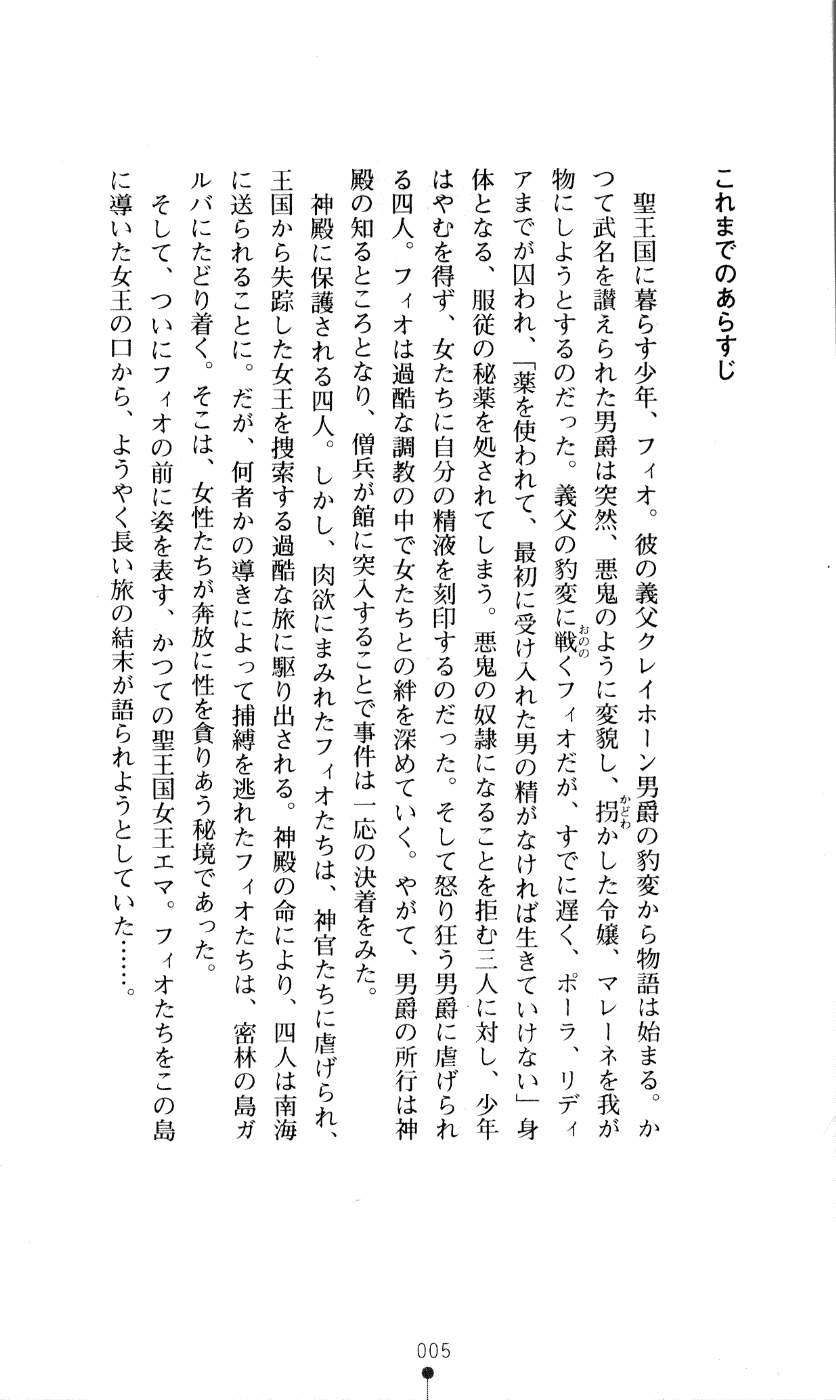 これまでのあらすじ
聖王国に暮らす少年、フィオ。彼の義父クレイホーン男爵の豹変から物語は始まる。か
つて武名を讃えられた男爵は突然、悪鬼のように変貌し、拐かした令嬢、マレーネを我が
物にしようとするのだった。義父の豹変に戦くフィオだが、すでに遅く、ポーラ、リディ
アまでが囚われ、「薬を使われて、最初に受け入れた男の精がなければ生きていけない」身
体となる、服従の秘薬を処されてしまう。悪鬼の奴隷になることを拒む三人に対し、少年
はやむを得ず、女たちに自分の精液を刻印するのだった。そして怒り狂う男爵に虐げられ
る四人。フィオは過酷な調教の中で女たちとの絆を深めていく。やがて、男爵の所行は神
殿の知るところとなり、僧兵が館に突入することで事件は一応の決着をみた。
神殿に保護される四人。しかし、肉欲にまみれたフィオたちは、神官たちに虐げられ、
王国から失踪した女王を捜索する過酷な旅に駆り出される。神殿の命により、四人は南海
に送られることに。だが、何者かの導きによって捕縛を逃れたフィオたちは、密林の島ガ
ルバにたどり着く。そこは、女性たちが奔放に性を貪りあう秘境であった。
そして、ついにフィオの前に姿を表す、かつての聖王国女王エマ。フィオたちをこの島
に導いた女王の口から、ようやく長い旅の結末が語られようとしていた……。
かどわ
おのの
005